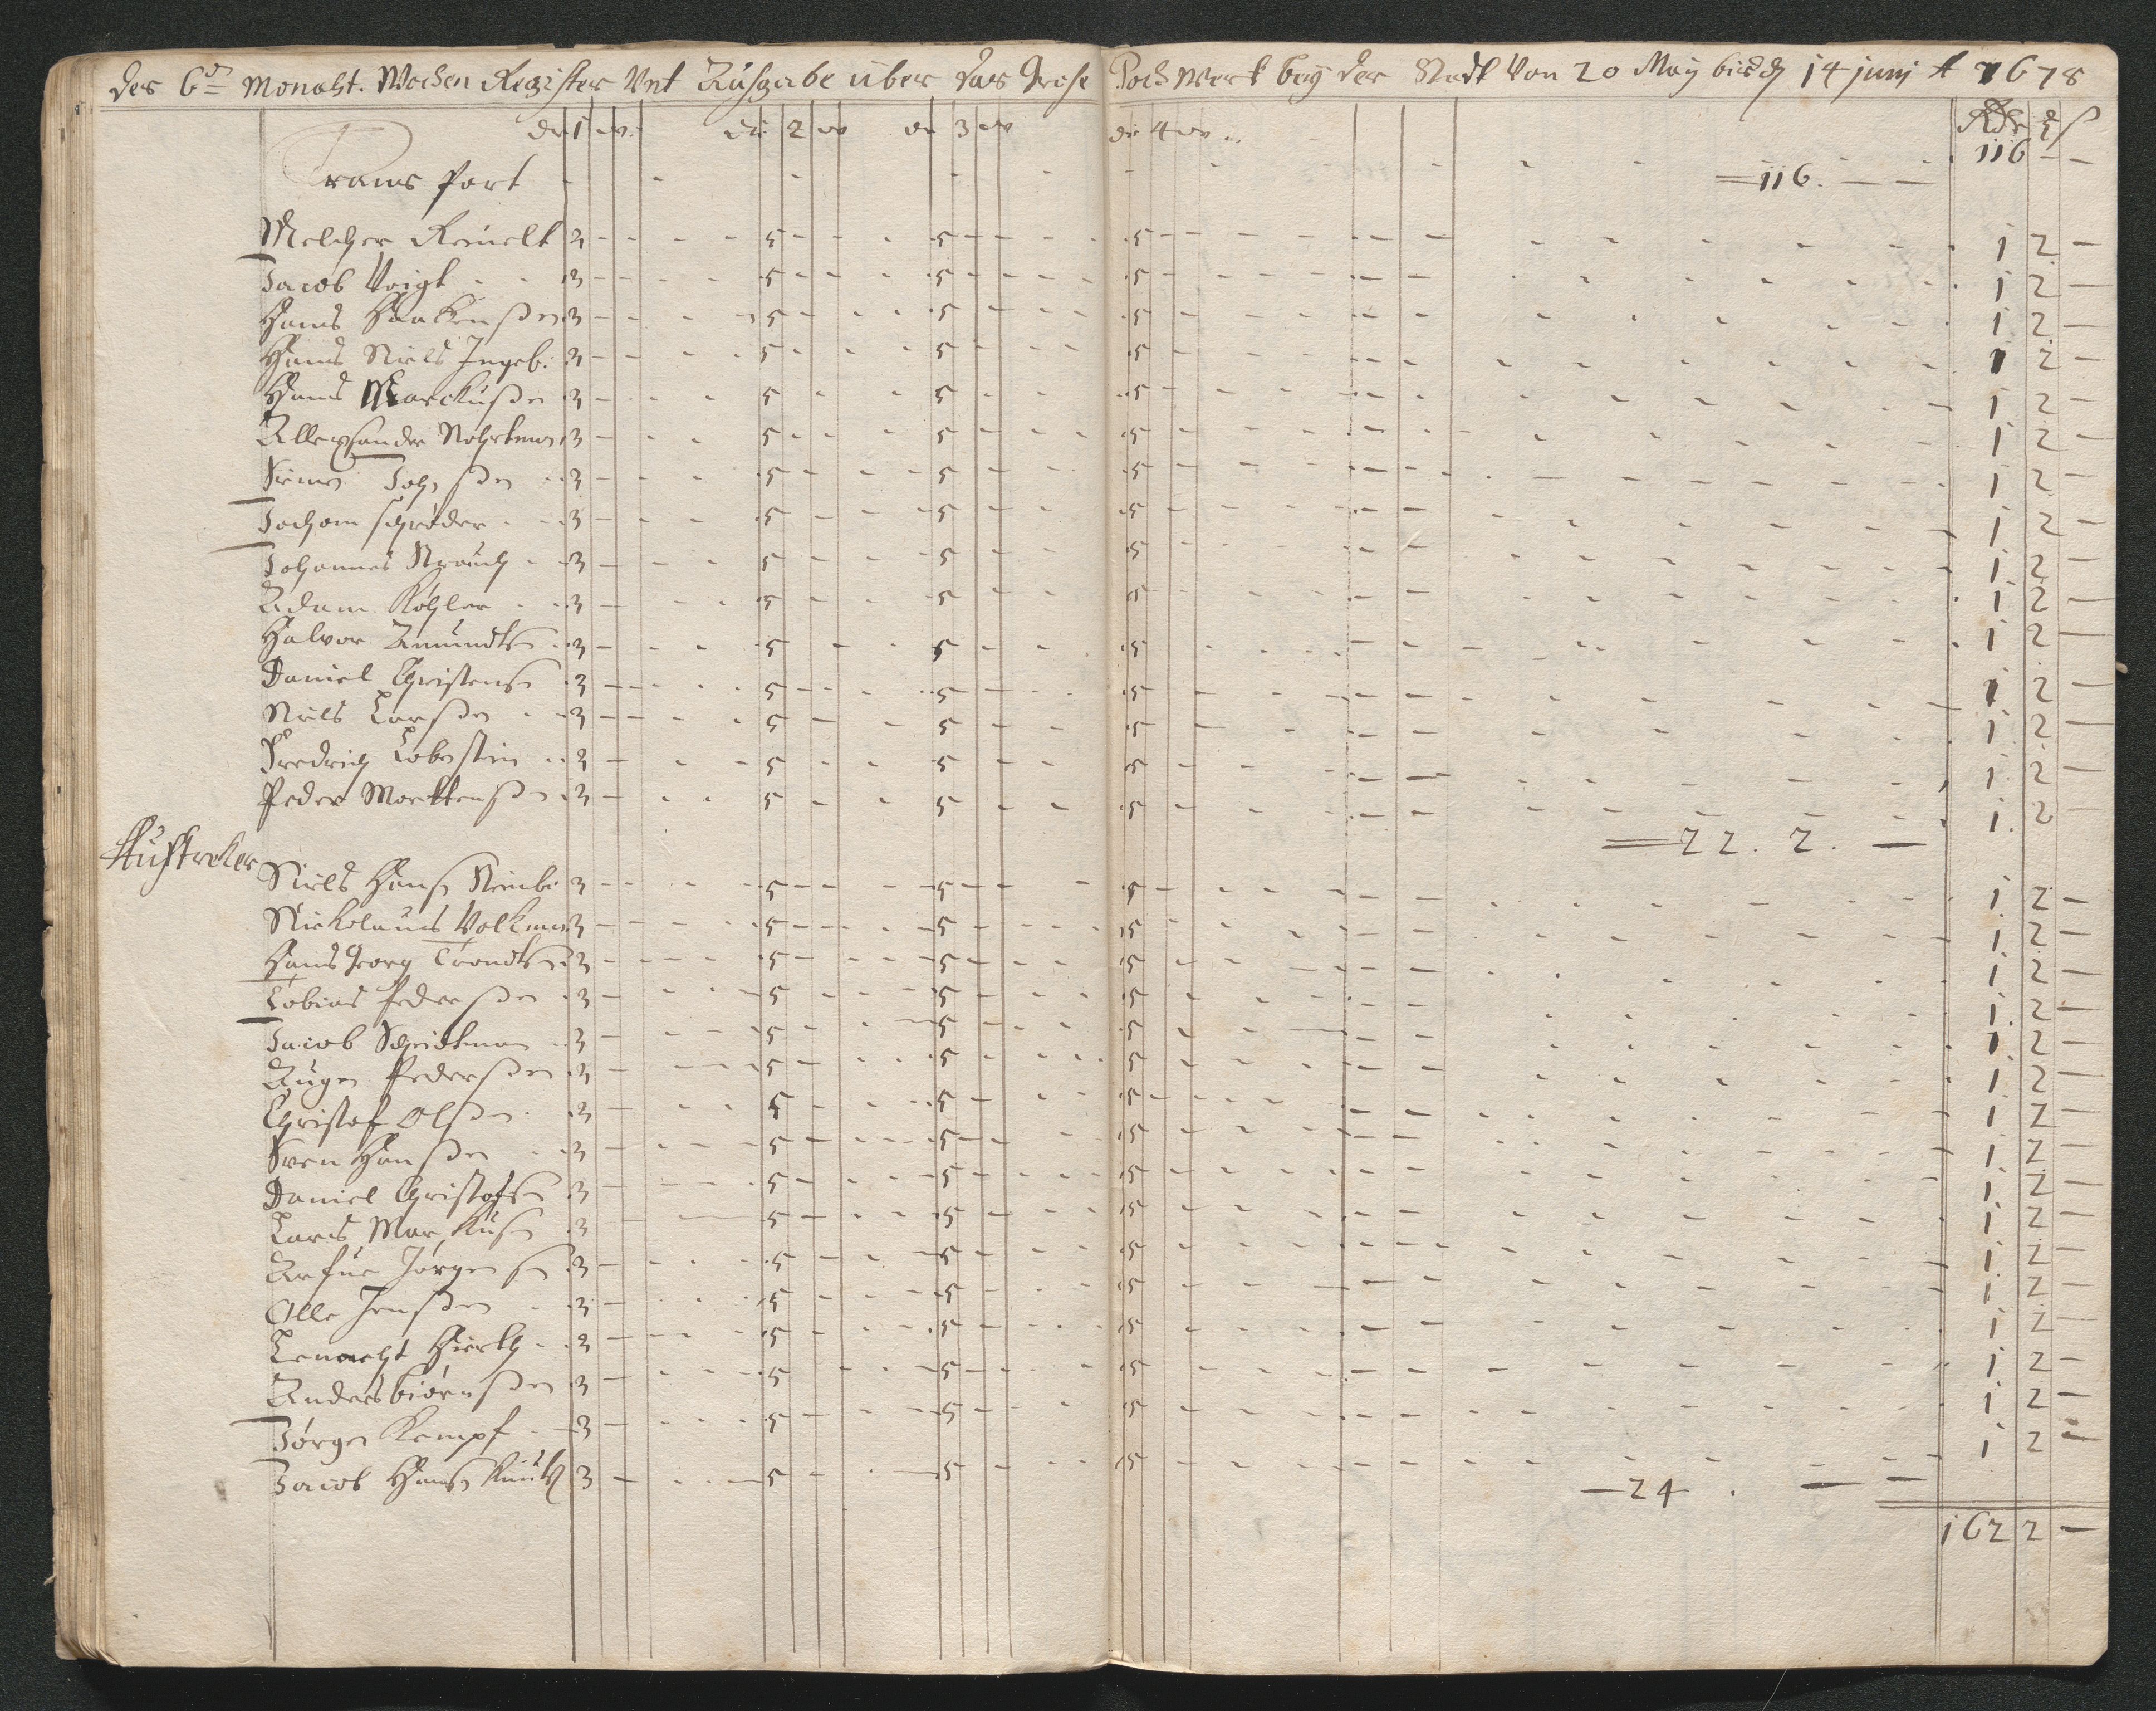 Des 6ten Monaht. Wochen Register Vnt Ausgabe über das Grose Poch Werk beÿ der Stadt Von 20 Maÿ bis d 14 junj A 1678
die 1 w. die 2 w die 3 w die 4 w. Rdr
Trans port - - - - - =116. — — 116 - -
Melcher Reinelt 3 5 5 5 1 2 —
Jacob Voigt 3 5 5 5 1 2 —
Hans Haakensßen 3 5 5 5 1 2 —
Hans Niels Ingeb: 3 5 5 5 1 2 —
Hans Marckußen 3 5 5 5 1 2 —
Allexsander 3 5 5 5 1 2 —
Simen Johsßen 3 5 5 5 1 2 —
Jochom schröder 3 5 5 5 1 2 —
Johannes Strauch 3 5 5 5 1 2 —
Adam Köhler 3 5 5 5 1 2 —
Halvor Amundts 3 5 5 5 1 2 —
Daniel Christens 3 5 5 5 1 2 —
Niels Larsßen 3 5 5 5 1 2 —
Fredrich Lobestein 3 5 5 5 1 2 —
Peder Morttensßen 3 5 5 5 1 2 —
=22. 2. —
Austreker
Niels Hans Steinb: 3 5 5 5 1 2 —
Nickolaus Volkman 3 5 5 5 1 2 —
Hans Georg Trondts 3 5 5 5 1 2 —
Tobias Pedersßen 3 5 5 5 1 2 —
Jacob Scheidtman 3 5 5 5 1 2 —
Augen Pedersßen 3 5 5 5 1 2 —
Christof Olsßen 3 5 5 5 1 2 —
Sven Hansßen 3 5 5 5 1 2 —
Daniel Christofs 3 5 5 5 1 2 —
Lars Markus 3 5 5 5 1 2 —
Jörgens 3 5 5 5 1 2 —
Olle Jensßen 3 5 5 5 1 2 —
Lenneht 3 5 5 5 1 2 —
Anders biörnsßen 3 5 5 5 1 2 —
Jörgen Kempf 3 5 5 5 1 2 —
Jacob Hans 3 5 5 5 1 2 —
—24 . — —
162 2 —